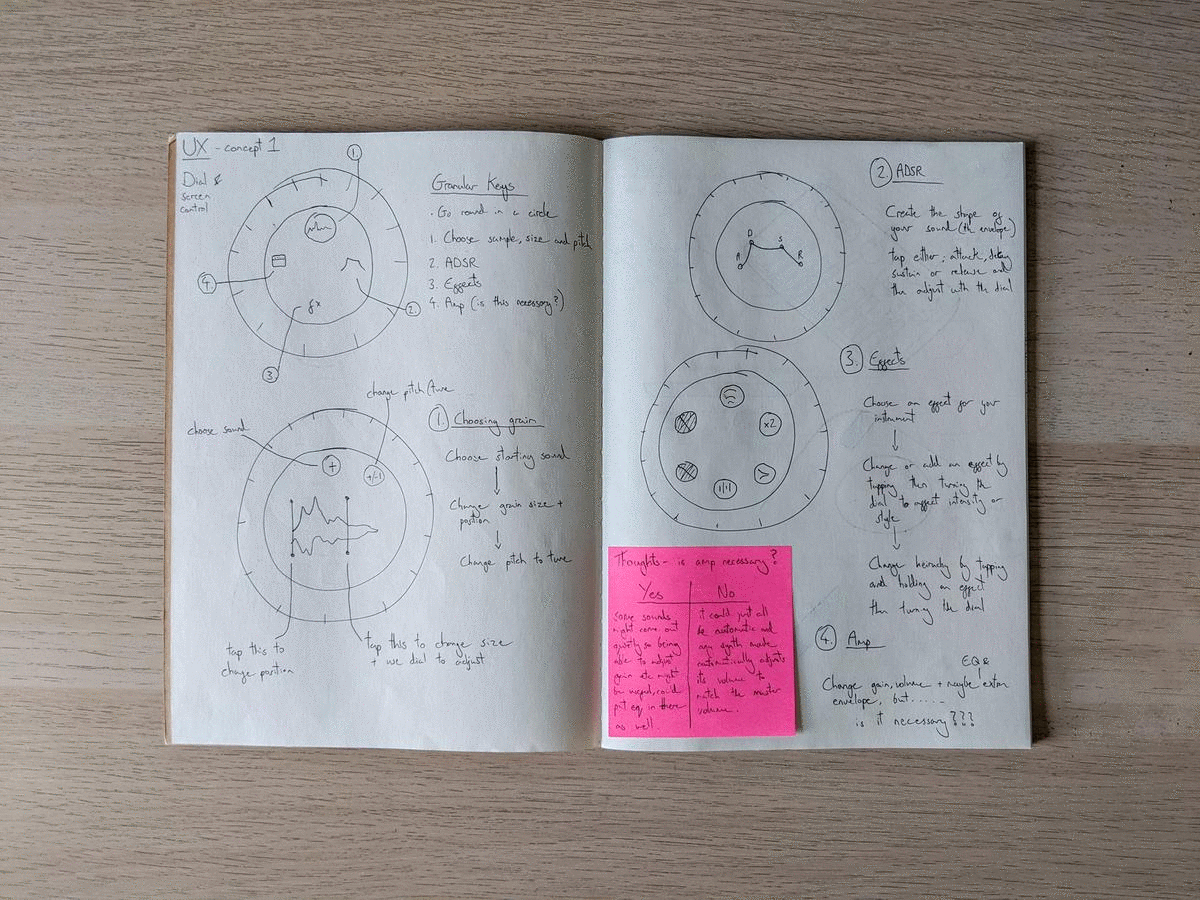 UX - concept 1
Dial &
screen
control
1.
2.
3.
4.
fx
Granular Keys
· Go round in a circle
1. Choose sample, size and pitch
2. ADSR
3. Effects
4. Amp (is this necessary?)
change pitch/tune
choose sound
+
+/-1
tap this to
change position
tap this to change size
+ use dial to adjust
1. Choosing grain
Choose starting sound
Change grain size +
position
Change pitch to tune
A
D
S
R
2) ADSR
Create the shape of
your sound (the envelope)
tap either; attack, delay
sustain or release and
the adjust with the dial
x2
3. Effects
Choose an effect for your
instrument
Change or add an effect by
tapping then turning the
dial to affect intensity or
style
Change heirachy by tapping
and holding an effect
then turning the dial
Thoughts - is amp necessary?
Yes
Some sounds
might come out
quietly so being
able to adjust
gain etc might
be useful, could
put eq in there
as well.
No
it could just all
be automatic and
any synth made
automatically adjusts
its volume to
match the master
volume.
4. Amp
EQ &
Change gain, volume + maybe extra
envelope, but.....
is it necessary???